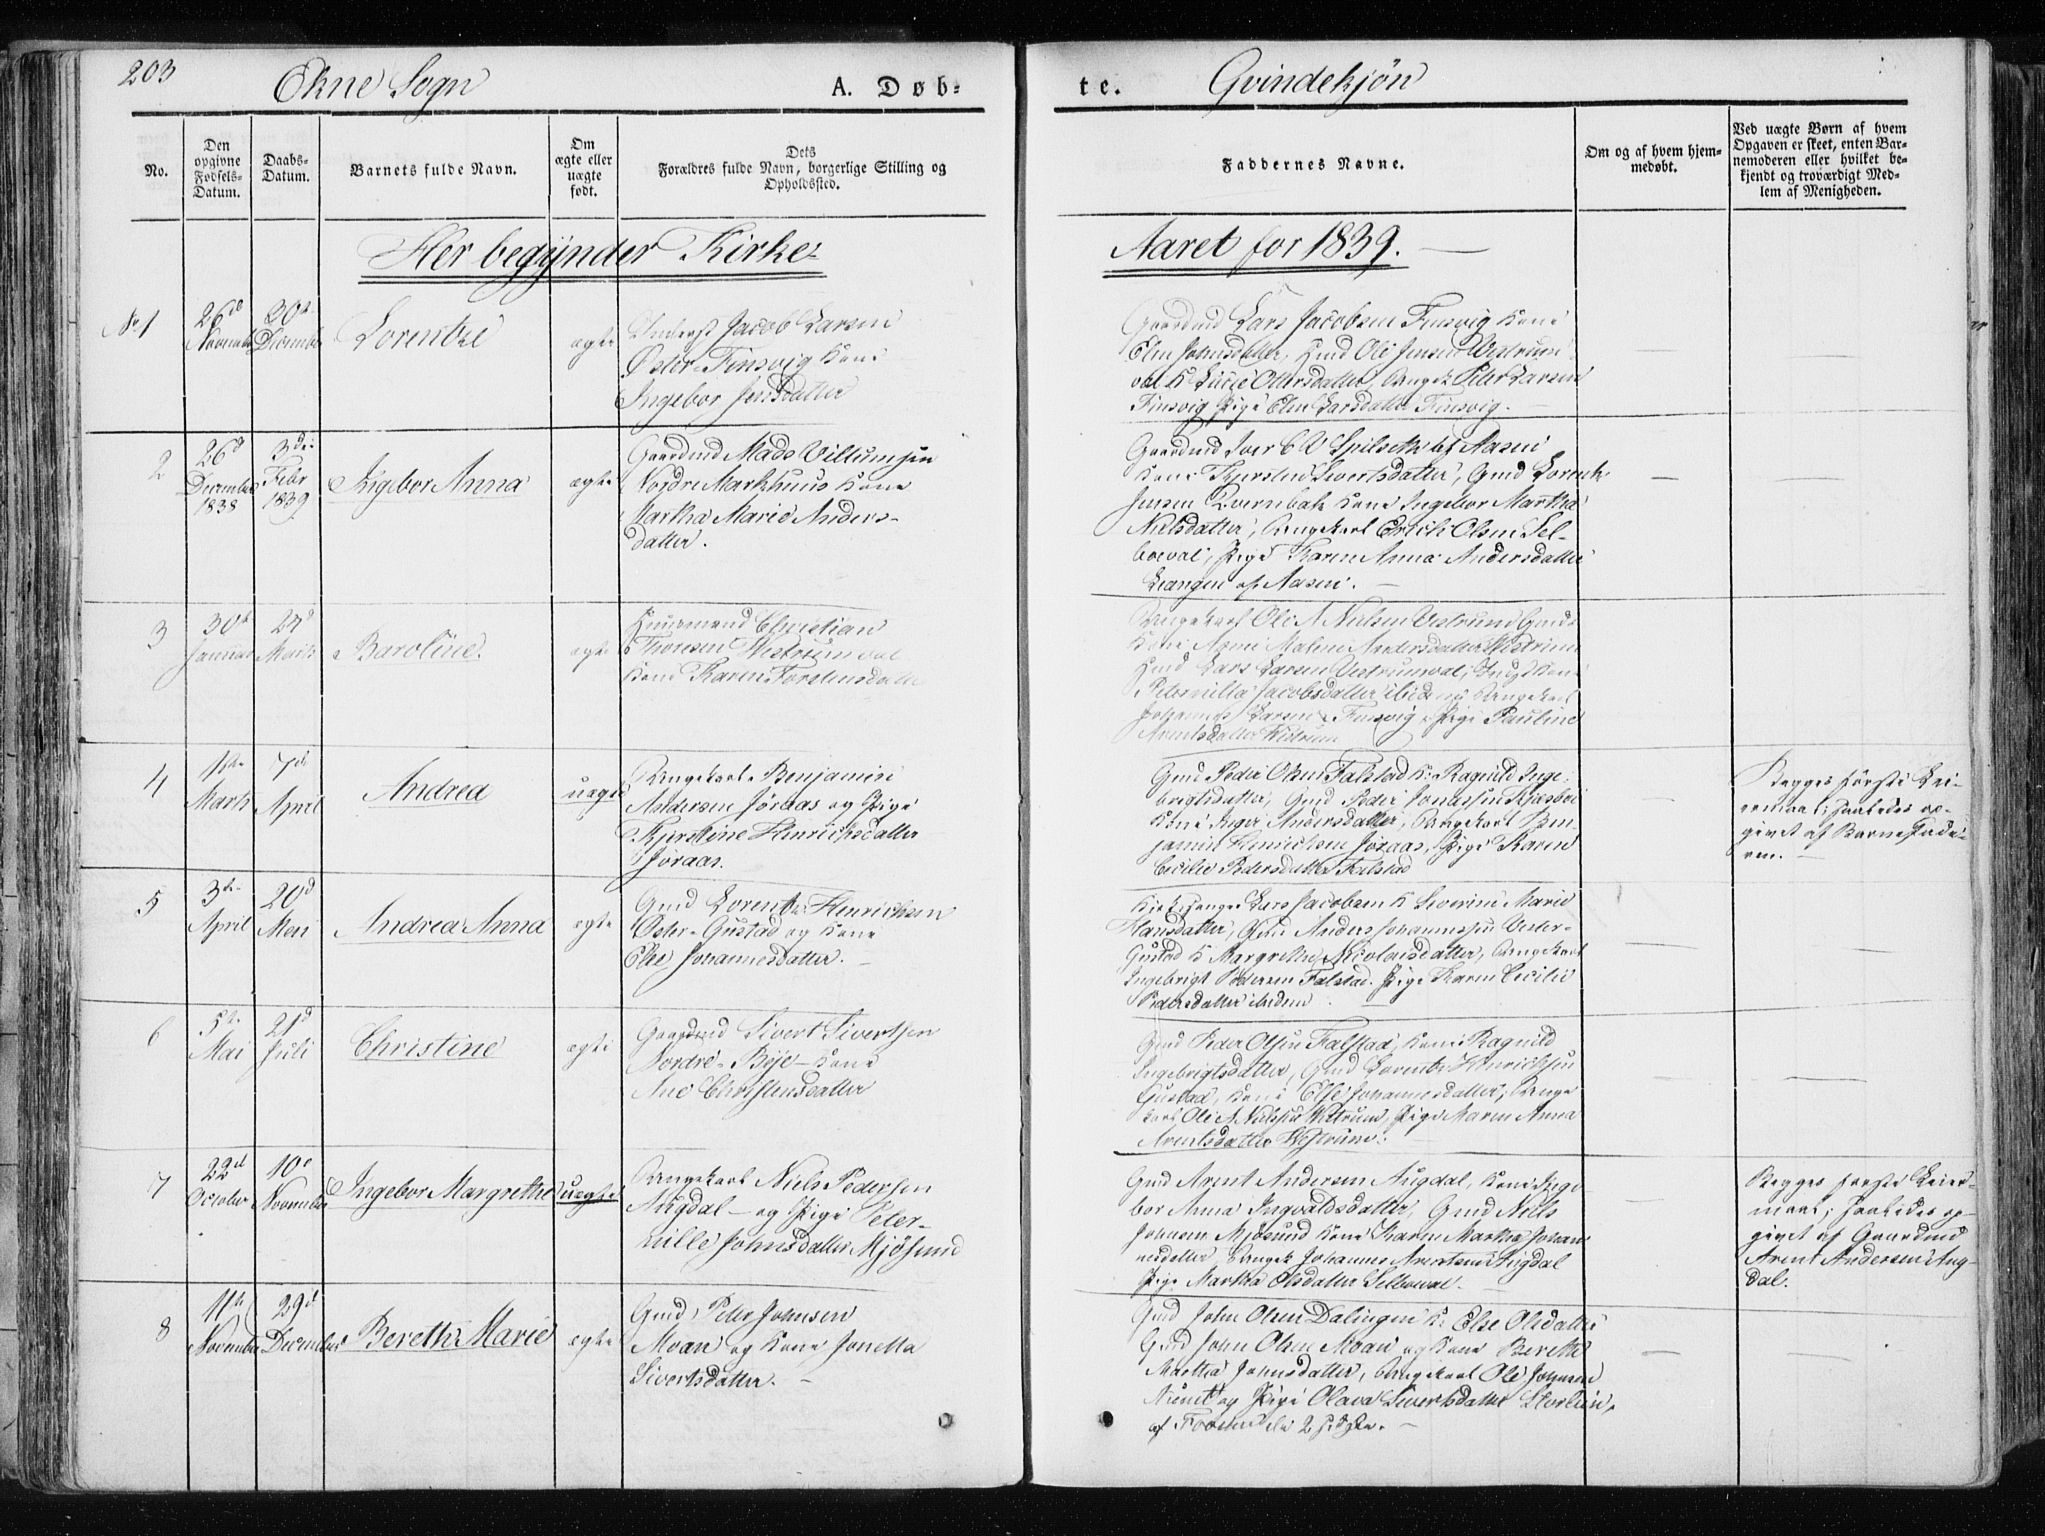 203
Ekne Sogn
A. Døb-
te.
Qvindekjøn
No.
Den opgivne Fødsels-Datum.
Daabs-Datum.
Barnets fulde Navn.
Om ægte eller uægte født.
Dets
Forældres fulde Navn, borgerlige Stilling og
Opholdssted.
Faddernes Navne.
Om og af hvem hjem-
medøbt.
Ved uægte Børn af hvem
Opgaven er skeet, enten Bar-
nemoderen eller hvilket be-
kjendt og troværdigt Med-
lem af Menigheden.
Her begynder Kirke-
Aaret for 1839.
No 1
26d
November
30te
December
Lorentze
ægte
Jacob Larsen
Østor Finsvig Kone
Ingebor Jensdatter
Gaardmd Lars Jacobsen Finsvig Kone
Elen Johnsdatter, Hmd Ole Jensen Westrum-
val K Ottersdatter, Ungk Peter Larsen
Finsvig Pige Elen Larsdatter Finsvig.
2
26d
December
1838
3die
Febr
1839
Ingebor Anna
ægte
Gaardmd Mads Villumsen
Nordre Markhuus Kone
Martha Marie Anders-
datter.
Gaardmd Iver af Aasen
Kone Sivertsdatter, Gmd Lorentz
Jensen Kone Ingebor Martha
Nielsdatter, Ungekarl Erich Olsen Sel-
boeval, Pige Karen Anna Andersdatter
af Aasen.
3
30te
Januar
24d
Marts
Baroline.
ægte
Huusmand Christian
Thoresen Westrumval
Kone Karen Torstensdatter
Ungekarl Ole A Nielsen Vestrum, Gmds
Kone Malene Andersdatter Westrum
Hmd Lars Larsen Vestrumval, Kone
Jacobsdatter ibidem, Ungekarl
Johannes Larsen Finsvig, Pige Pauline
Arentsdatter Westrum
4
1ste
Marts
7de
April
Andrea
uægte
Ungekarl Benjamin
Andersen Joraas og Pige
Kjerstine Henrichsdatter
Joraas.
Gmd Peder Olsen Falstad K. Ragnild Inge-
brigtsdatter, Gmd Peder Jonassen
Kone Inger Andersdatter, Ungekarl Ben-
jamin Henrichsen Joraas, Pige Karen
Cecilie Pedersdatter Falstad
Begges første Lei-
ermaal; saaledes op-
givet af Barnefade-
ren.
5
3die
April
20d
Mai
Andrea Anna
ægte
Gmd Lorentz Henrichsen
Øster-Gustad og Kone
Else Johannesdatter.
Lars Jacobsen K Severine Marie
Hansdatter, Gmd Anders Johannessen Vester-
Gustad K Margrethe Nicolaisdatter, Ungekarl
Ingebrigt Pedersen Falstad. Pige Karen Cecilie
Pedersdatter ibidem
6
5te
Mai
21d
Juli
Christine
ægte
Gaardmd Sivert Sivertsen
Nordre-Bye Kone
Ane Christensdatter
Gmd Peder Olsen Falstad, Kone Ragnild
Ingebrigtsdatter, Gmd Lorentz Henrichsen
Gustad, Kone Else Johannesdatter, Unge
karl Ole A Nielsen Westrum, Pige Maren Anna
Arentsdatter Westrum.
7
22d
October
10d
November
Ingebor Margrethe
uægte
Ungekarl Niels Pedersen
Augdal - og Pige Peter-
nille Johnsdatter Mjøsund
Gmd Arent Andersen Augdal, Kone Inge
bor Anna Ingvaldsdatter, Gmd Niels
Johnsen Mjøsund Kone Karen Martha Johan
nesdatter Ungek Johannes Arentsen Augdal
Pige Martha Olsdatter Selboeval.
Begges første Leier-
maal; saaledes op-
givet af Gaardmd
Arent Andersen Aug-
dal.
8
11te
November
29d
December
Bereth Marie
ægte
Gmd Peter Johnsen
Moan og Kone Jonetta
Sivertsdatter.
Gmd John Olsen Dalingen K. Else Olsdatter
Gmd John Olsen Moan og Kone Bereth
Martha Johnsdatter, Ungekarl Ole Johnsen
og Pige Olava Sivertsdatter
af